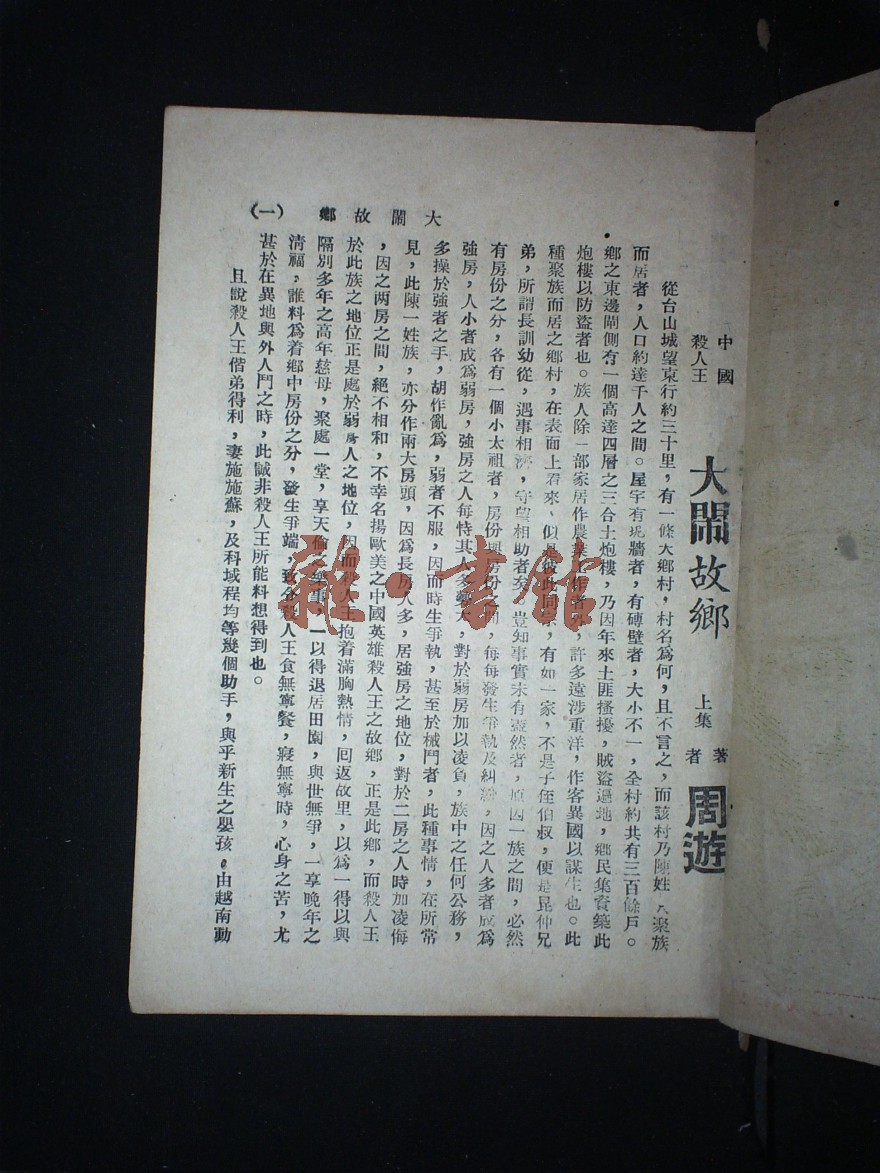 中國
殺人王
大鬧故鄉
上集
著者
周遊
從台山城望東行約三十里，有一條大鄉村，村名為何，且不言之，而該村乃陳姓人聚族
而居者，人口約達千人之間。屋宇有坭牆者，有磚壁者，大小不一，全村約共有三百餘戶。
鄉之東邊閘側有一個高達四層之三合土炮樓，乃因年來土匪搔擾，賊盜遍地，鄉民集資築此
炮樓以防盜者也。族人除一部家居作農業工作者外，許多遠涉重洋，作客異國以謀生也。此
種聚族而居之鄉村，在表面上看來，似是彼此同宗，有如一家，不是子侄伯叔，便是昆仲兄
弟，所謂長訓幼從，遇事相濟，守望相助者矣。豈知事實未有盡然者，原因一族之間，必然
有房份之分，各有一個小太祖者，房份與房份之間，每每發生爭執及糾紛，因之人多者成為
強房，人小者成為弱房，強房之人每恃其人多勢大，對於弱房加以凌負，族中之任何公務，
多操於強者之手，胡作亂為，弱者不服，因而時生爭執，甚至於械鬥者，此種事情，在所常
見，此陳一姓族，亦分作兩大房頭，因為長房人多，居強房之地位，對於二房之人時加凌侮
，因之两房之間，絕不相和，不幸名揚歐美之中國英雄殺人王之故鄉，正是此鄉，而殺人王
於此族之地位正是處於弱房人之地位，因而殺人王抱着滿胸熱情，囘返故里，以為一得以與
隔別多年之高年慈母，聚處一堂，享天倫之樂事，一以得退居田園，與世無爭，一享晚年之
清福，誰料為着鄉中房份之分，發生爭端，致令殺人王食無寧餐，寢無寧時，心身之苦，尤
甚於在異地與外人鬥之時，此誠非殺人王所能料想得到也。
且說殺人王偕弟得利，妻施施蘇，及科域程均等幾個助手，與乎新生之嬰孩，由越南動
大鬧故鄉
（一）
雜·書館